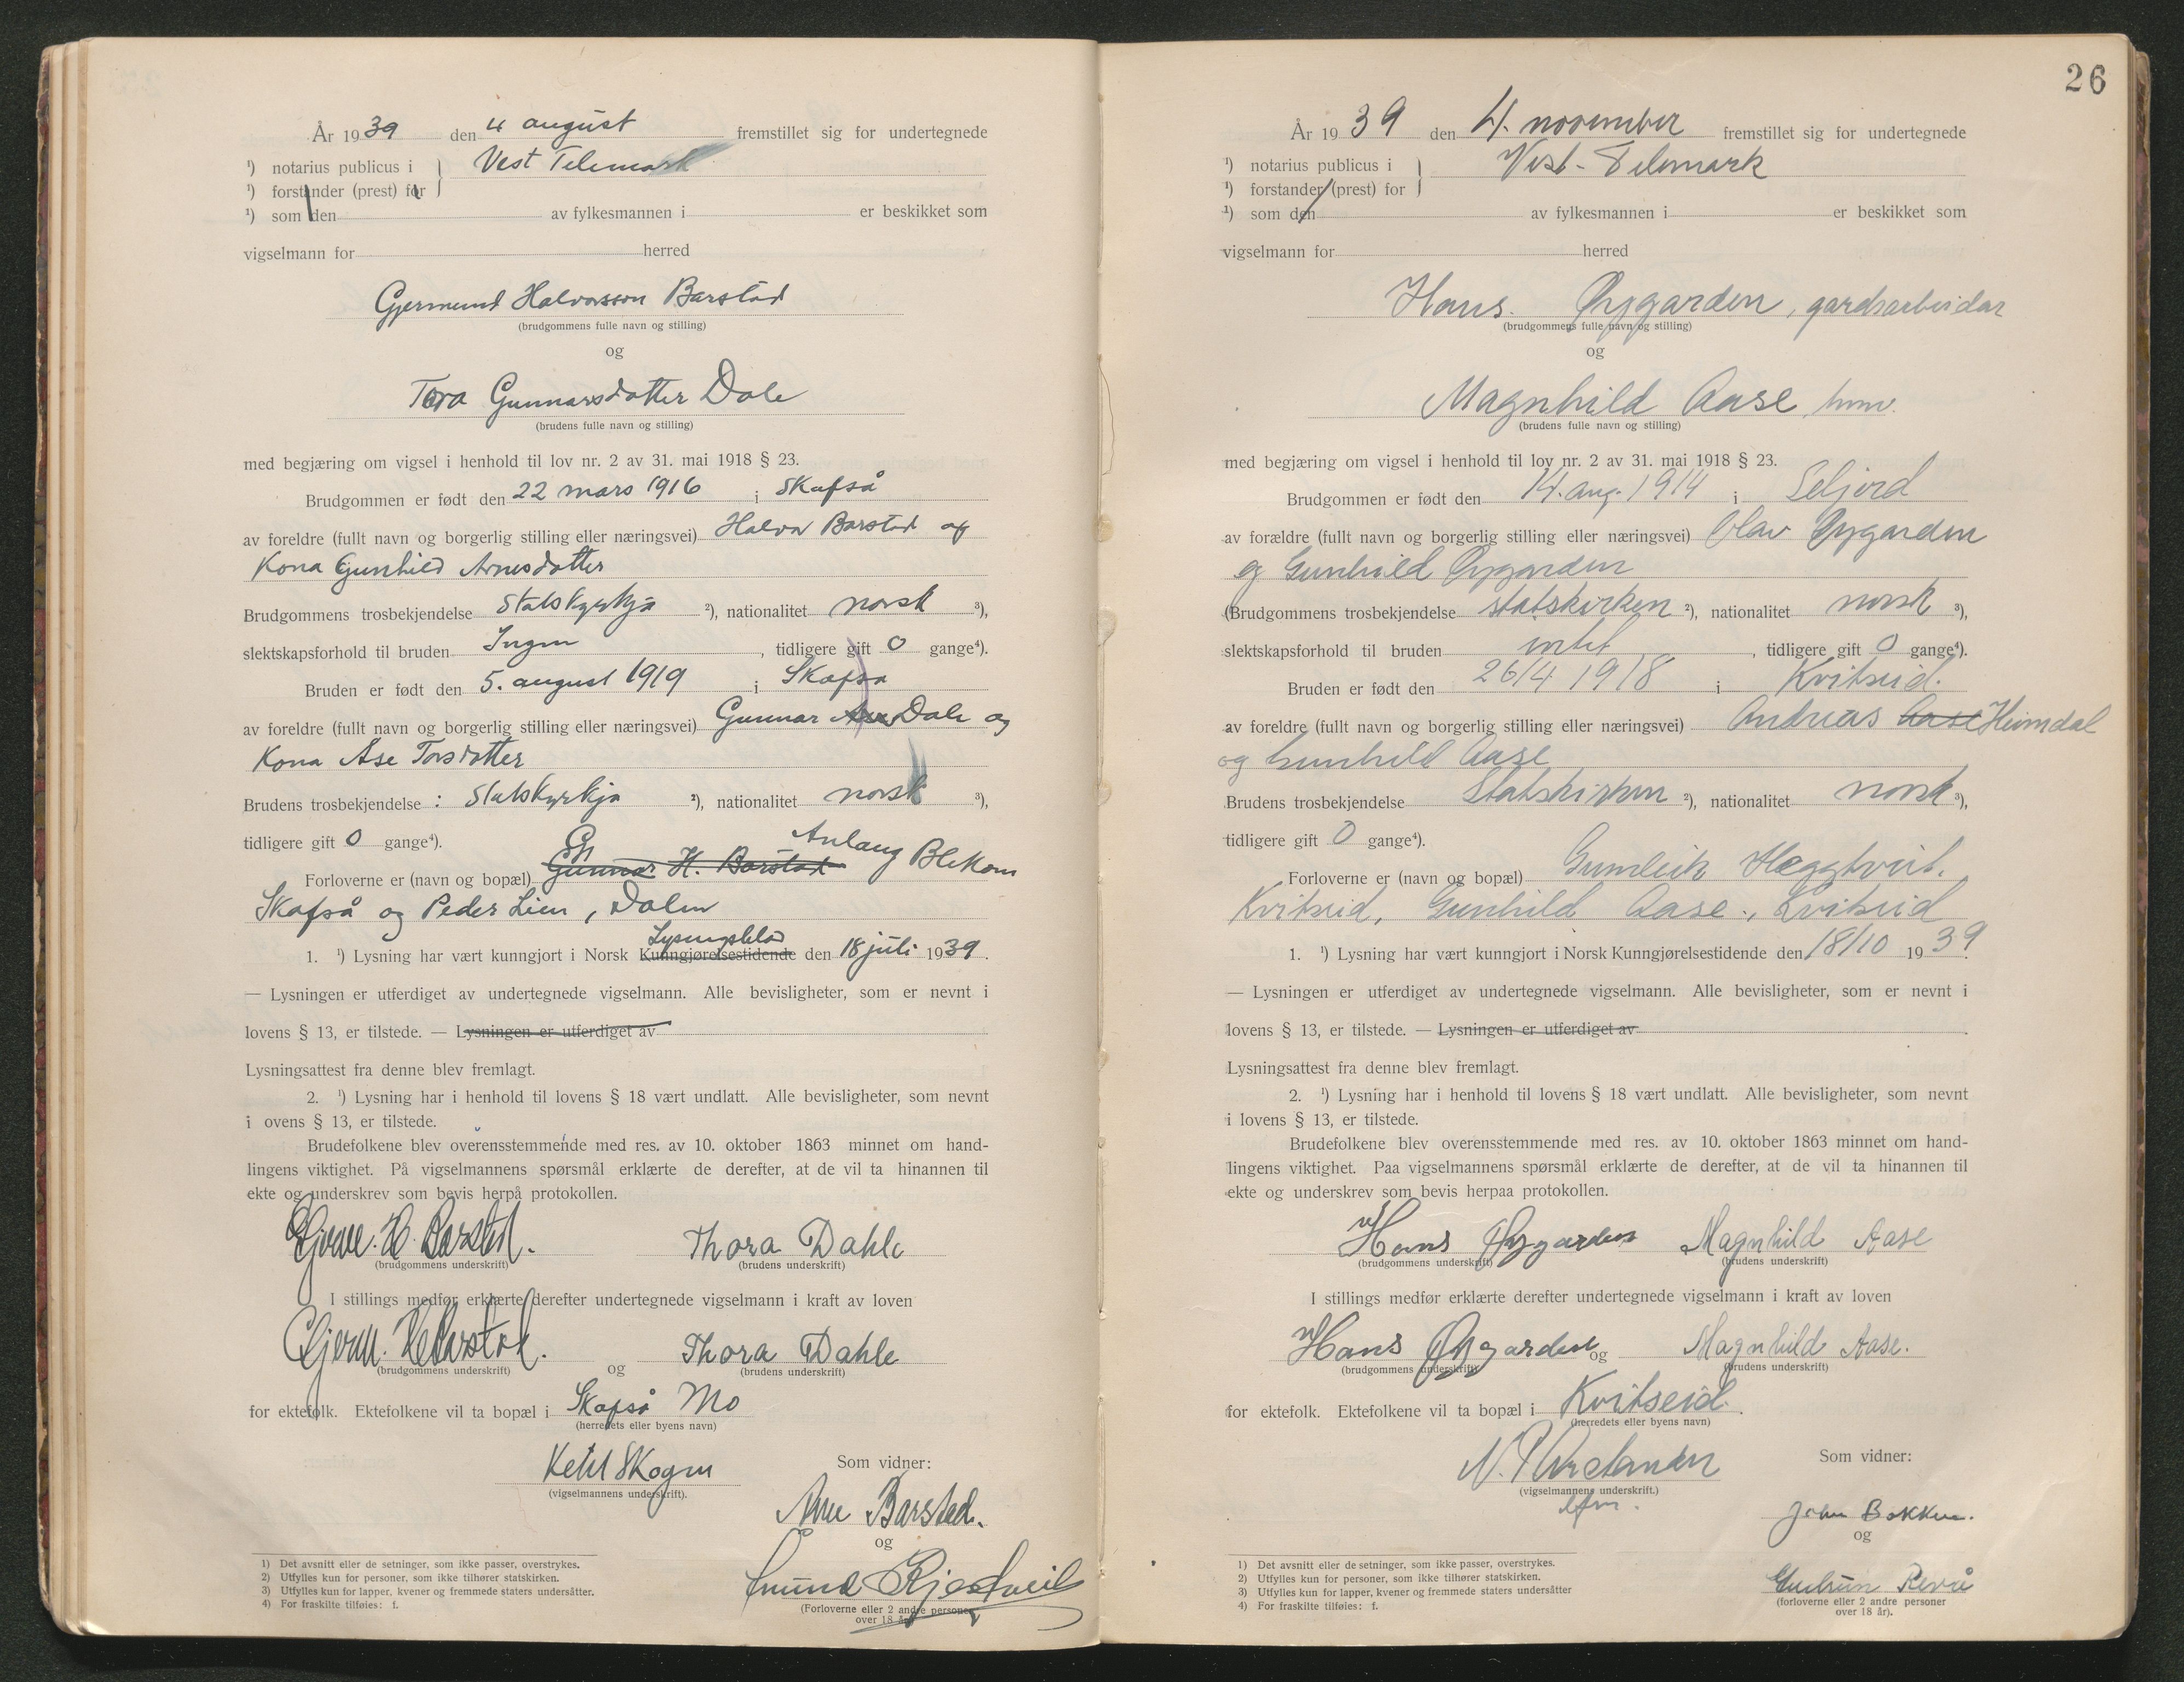 År 1939 den 4 august fremstillet sig for undertegnede
¹) notarius publicus i } Vest Telemark
¹) forstander (prest) for
¹) som den av fylkesmannen i er beskikket som
vigselmann for herred
Gjermund Halvorsson Barstad
(brudgommens fulle navn og stilling)
og
Tora Gunnarsdotter Dale
(brudens fulle navn og stilling)
med begjæring om vigsel i henhold til lov nr. 2 av 31. mai 1918 § 23.
Brudgommen er født den 22 mars 1916 i Skafså
av foreldre (fullt navn og borgerlig stilling eller næringsvei) Halvor Barstad og
Kona Gunhild Arnesdotter
Brudgommens trosbekjendelse Statskyrkja ²), nationalitet norsk ³),
slektskapsforhold til bruden Ingen, tidligere gift 0 gange⁴).
Bruden er født den 5. august 1919 i Skafså
av foreldre (fullt navn og borgerlig stilling eller næringsvei) Gunnar Dale og
Kona Åse Torsdotter
Brudens trosbekjendelse : Statskyrkja ²), nationalitet norsk ³),
tidligere gift 0 gange⁴).
Forloverne er (navn og bopæl) Gunnar H. Barstad Anlaug Blekom
Skafså og Peder Lien, Dalen
1. ¹) Lysning har vært kunngjort i Norsk Kunngjørelsestidende Lysingsblad den 18 juli 1939.
— Lysningen er utferdiget av undertegnede vigselmann. Alle bevisligheter, som er nevnt i
lovens § 13, er tilstede. — Lysningen er utferdiget av
Lysningsattest fra denne blev fremlagt.
2. ¹) Lysning har i henhold til lovens § 18 vært undlatt. Alle bevisligheter, som nevnt
i ovens § 13, er tilstede.
Brudefolkene blev overensstemmende med res. av 10. oktober 1863 minnet om hand-
lingens viktighet. På vigselmannens spørsmål erklærte de derefter, at de vil ta hinannen til
ekte og underskrev som bevis herpå protokollen.
Gjerm. H. Barstad. Thora Dahle
(brudgommens underskrift) (brudens underskrift)
I stillings medfør erklærte derefter undertegnede vigselmann i kraft av loven
Gjerm. H. Barstad. og Thora Dahle
(brudgommens underskrift) (brudens underskrift)
for ektefolk. Ektefolkene vil ta bopæl i Skafså Mo
(herredets eller byens navn)
Ketil Skogen
(vigselmannens underskrift).
Som vidner:
Arne Barstad.
og
(Forloverne eller 2 andre personer
over 18 år)
1) Det avsnitt eller de setninger, som ikke passer, overstrykes.
2) Utfylles kun for personer, som ikke tilhører statskirken.
3) Utfylles kun for lapper, kvener og fremmede staters undersåtter.
4) For fraskilte tilføies: f.
26
År 1939 den 4. november fremstillet sig for undertegnede
¹) notarius publicus i } Vest-Telemark
¹) forstander (prest) for
¹) som den av fylkesmannen i er beskikket som
vigselmann for herred
Hans Øygarden, gardsarbeidar
(brudgommens fulle navn og stilling)
og
Magnhild Aase
(brudens fulle navn og stilling)
med begjæring om vigsel i henhold til lov nr. 2 av 31. mai 1918 § 23.
Brudgommen er født den 14. aug. 1914 i Seljord
av forældre (fullt navn og borgerlig stilling eller næringsvei) Olav Øygarden
og Gunhild Øygarden
(Brudgommens trosbekjendelse statskirken ²), nationalitet norsk ³),
slektskapsforhold til bruden intet, tidligere gift 0 gange⁴).
Bruden er født den 26/4 1918 i Kvitseid.
av foreldre (fullt navn og borgerlig stilling eller næringsvei) Andreas Aase Heimdal
og Gunhild Aase
Brudens trosbekjendelse Statskirken ²), nationalitet norsk ³),
tidligere gift 0 gange⁴).
Forloverne er (navn og bopæl) Gunleik Hæggtveit,
Kvitseid, Gunhild Aase, Kvitseid
1. ¹) Lysning har vært kunngjort i Norsk Kunngjørelsestidende den 18/10 1939.
— Lysningen er utferdiget av undertegnede vigselmann. Alle bevisligheter, som er nevnt i
lovens § 13, er tilstede. — Lysningen er utferdiget av
Lysningsattest fra denne blev fremlagt.
2. ¹) Lysning har i henhold til lovens § 18 vært undlatt. Alle bevisligheter, som nevnt
i lovens § 13, er tilstede.
Brudefolkene blev overensstemmende med res. av 10. oktober 1863 minnet om hand-
lingens viktighet. Paa vigselmannens spørsmål erklærte de derefter, at de vil ta hinannen til
ekte og underskrev som bevis herpaa protokollen.
Hans Øygarden Magnhild Aase
(brudgommens underskrift) (brudens underskrift)
I stillings medfør erklærte derefter undertegnede vigselmann i kraft av loven
Hans Øygarden og Magnhild Aase.
(brudgommens underskrift) (brudens underskrift)
for ektefolk. Ektefolkene vil ta bopæl i Kvitseid.
(herredets eller byens navn)
(vigselmannens underskrift.)
Som vidner:
John Bakken.
og
Gudrun Revå
(forloverne eller 2 andre personer
over 18 år).
1) Det avsnitt eller de setninger, som ikke passer, overstrykes.
2) Utfylles kun for personer, som ikke tilhører statskirken.
3) Utfylles kun for lapper, kvener og fremmede staters undersåtter
4) For fraskilte tilføies: f.